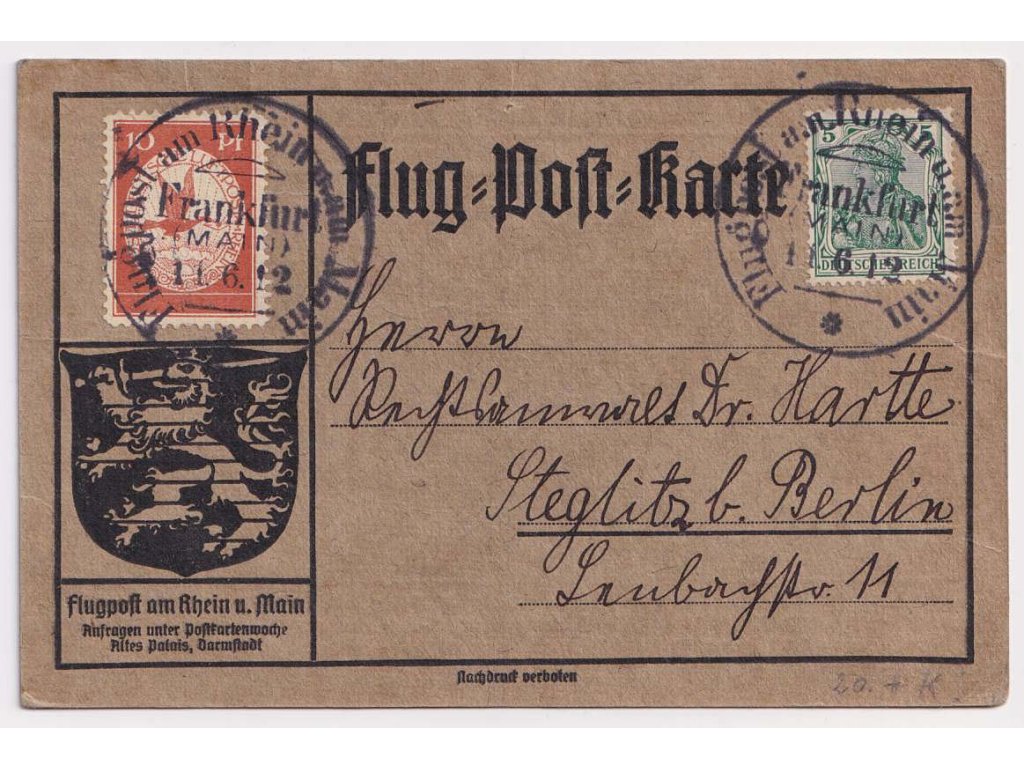 10 Pf
Flugpost am Rhein u. am Main
Frankfurt
(MAIN)
11.6.12
Flug=Post=Karte
5 5
DEUTSCHES REICH
Flugpost am Rhein u. am Main
Frankfurt
(MAIN)
11.6.12
Herrn
Rechtsanwalt Dr. Hartte
Steglitz b. Berlin
Lenbachstr. 11
Flugpost am Rhein u. Main
Anfragen unter Postkartenwoche
Altes Palais, Darmstadt
Nachdruck verboten
20.+ K